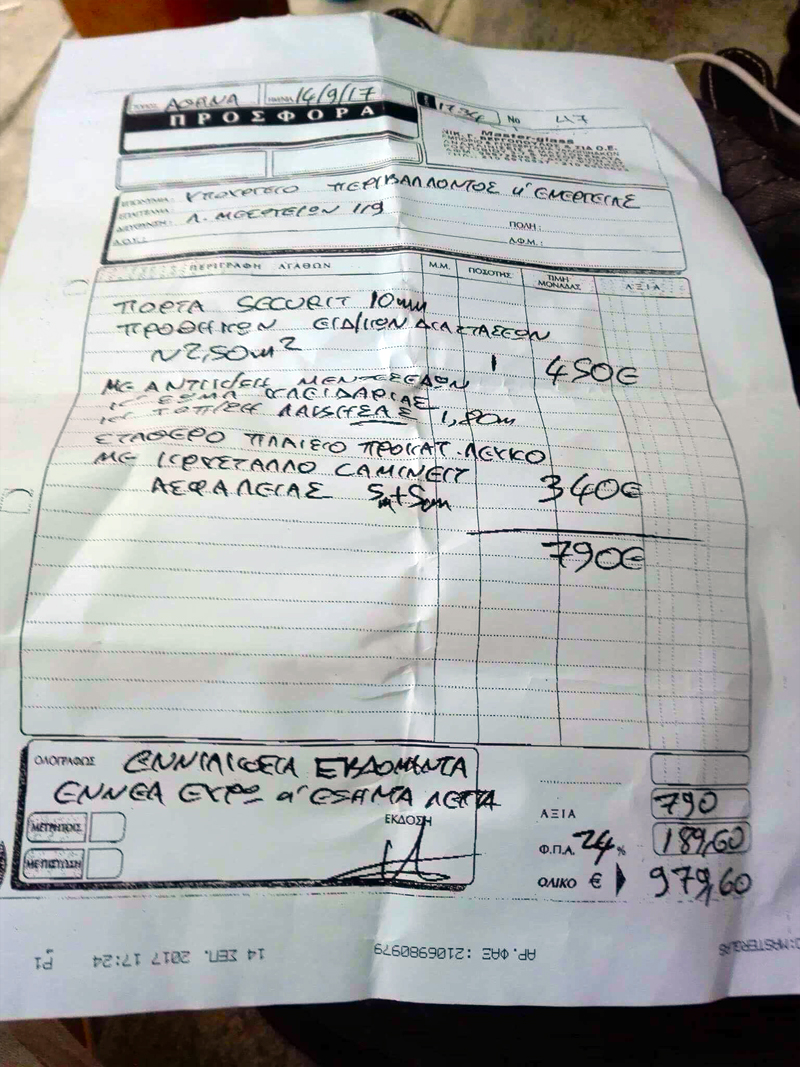 ΑΘΗΝΑ 14/9/17
No 47
ΠΡΟΣΦΟΡΑ
Masterglass
ΕΠΩΝΥΜΙΑ: ΥΠΟΥΡΓΕΙΟ ΠΕΡΙΒΑΛΛΟΝΤΟΣ & ΕΝΕΡΓΕΙΑΣ
ΕΠΑΓΓΕΛΜΑ:
ΔΙΕΥΘΥΝΣΗ: Λ. ΜΕΣΟΓΕΙΩΝ 119 ΠΟΛΗ:
Δ.Ο.Υ.: Α.Φ.Μ.:
ΠΕΡΙΓΡΑΦΗ ΑΓΑΘΩΝ Μ.Μ. ΠΟΣΟΤΗΣ ΤΙΜΗ ΜΟΝΑΔΑΣ ΑΞΙΑ
ΠΟΡΤΑ SECURIT 10mm
ΠΡΟΘΗΚΩΝ ΕΙΔΙΚΩΝ ΔΙΑΣΤΑΣΕΩΝ
~2,50m² 1 450€
ΜΕ ΑΝΤΙΚ/ΣΗ ΜΕΝΤΕΣΕΔΩΝ
ΚΛΕΙΔΑΡΙΑΣ
& ΤΟΠ/ΣΗ 1,80m
ΣΤΑΘΕΡΟ ΠΛΑΙΣΙΟ ΠΡΟΚΑΤ. ΛΕΥΚΟ
ΜΕ ΚΡΥΣΤΑΛΛΟ LAMINEIT
ΑΣΦΑΛΕΙΑΣ 5m+5mm 340€
790€
ΟΛΟΓΡΑΦΩΣ ΕΝΝΙΑΚΟΣΙΑ ΕΒΔΟΜΗΝΤΑ
ΕΝΝΕΑ ΕΥΡΩ & ΕΞΗΝΤΑ ΛΕΠΤΑ
ΜΕΤΡΗΤΟΙΣ
ΜΕ ΠΙΣΤΩΣΗ
ΕΚΔΟΣΗ
ΑΞΙΑ 790
Φ.Π.Α. 24 % 189,60
ΟΛΙΚΟ € 979,60
ΑΡ. ΦΑΞ :2106980979 14 ΣΕΠ. 2017 17:24 P1